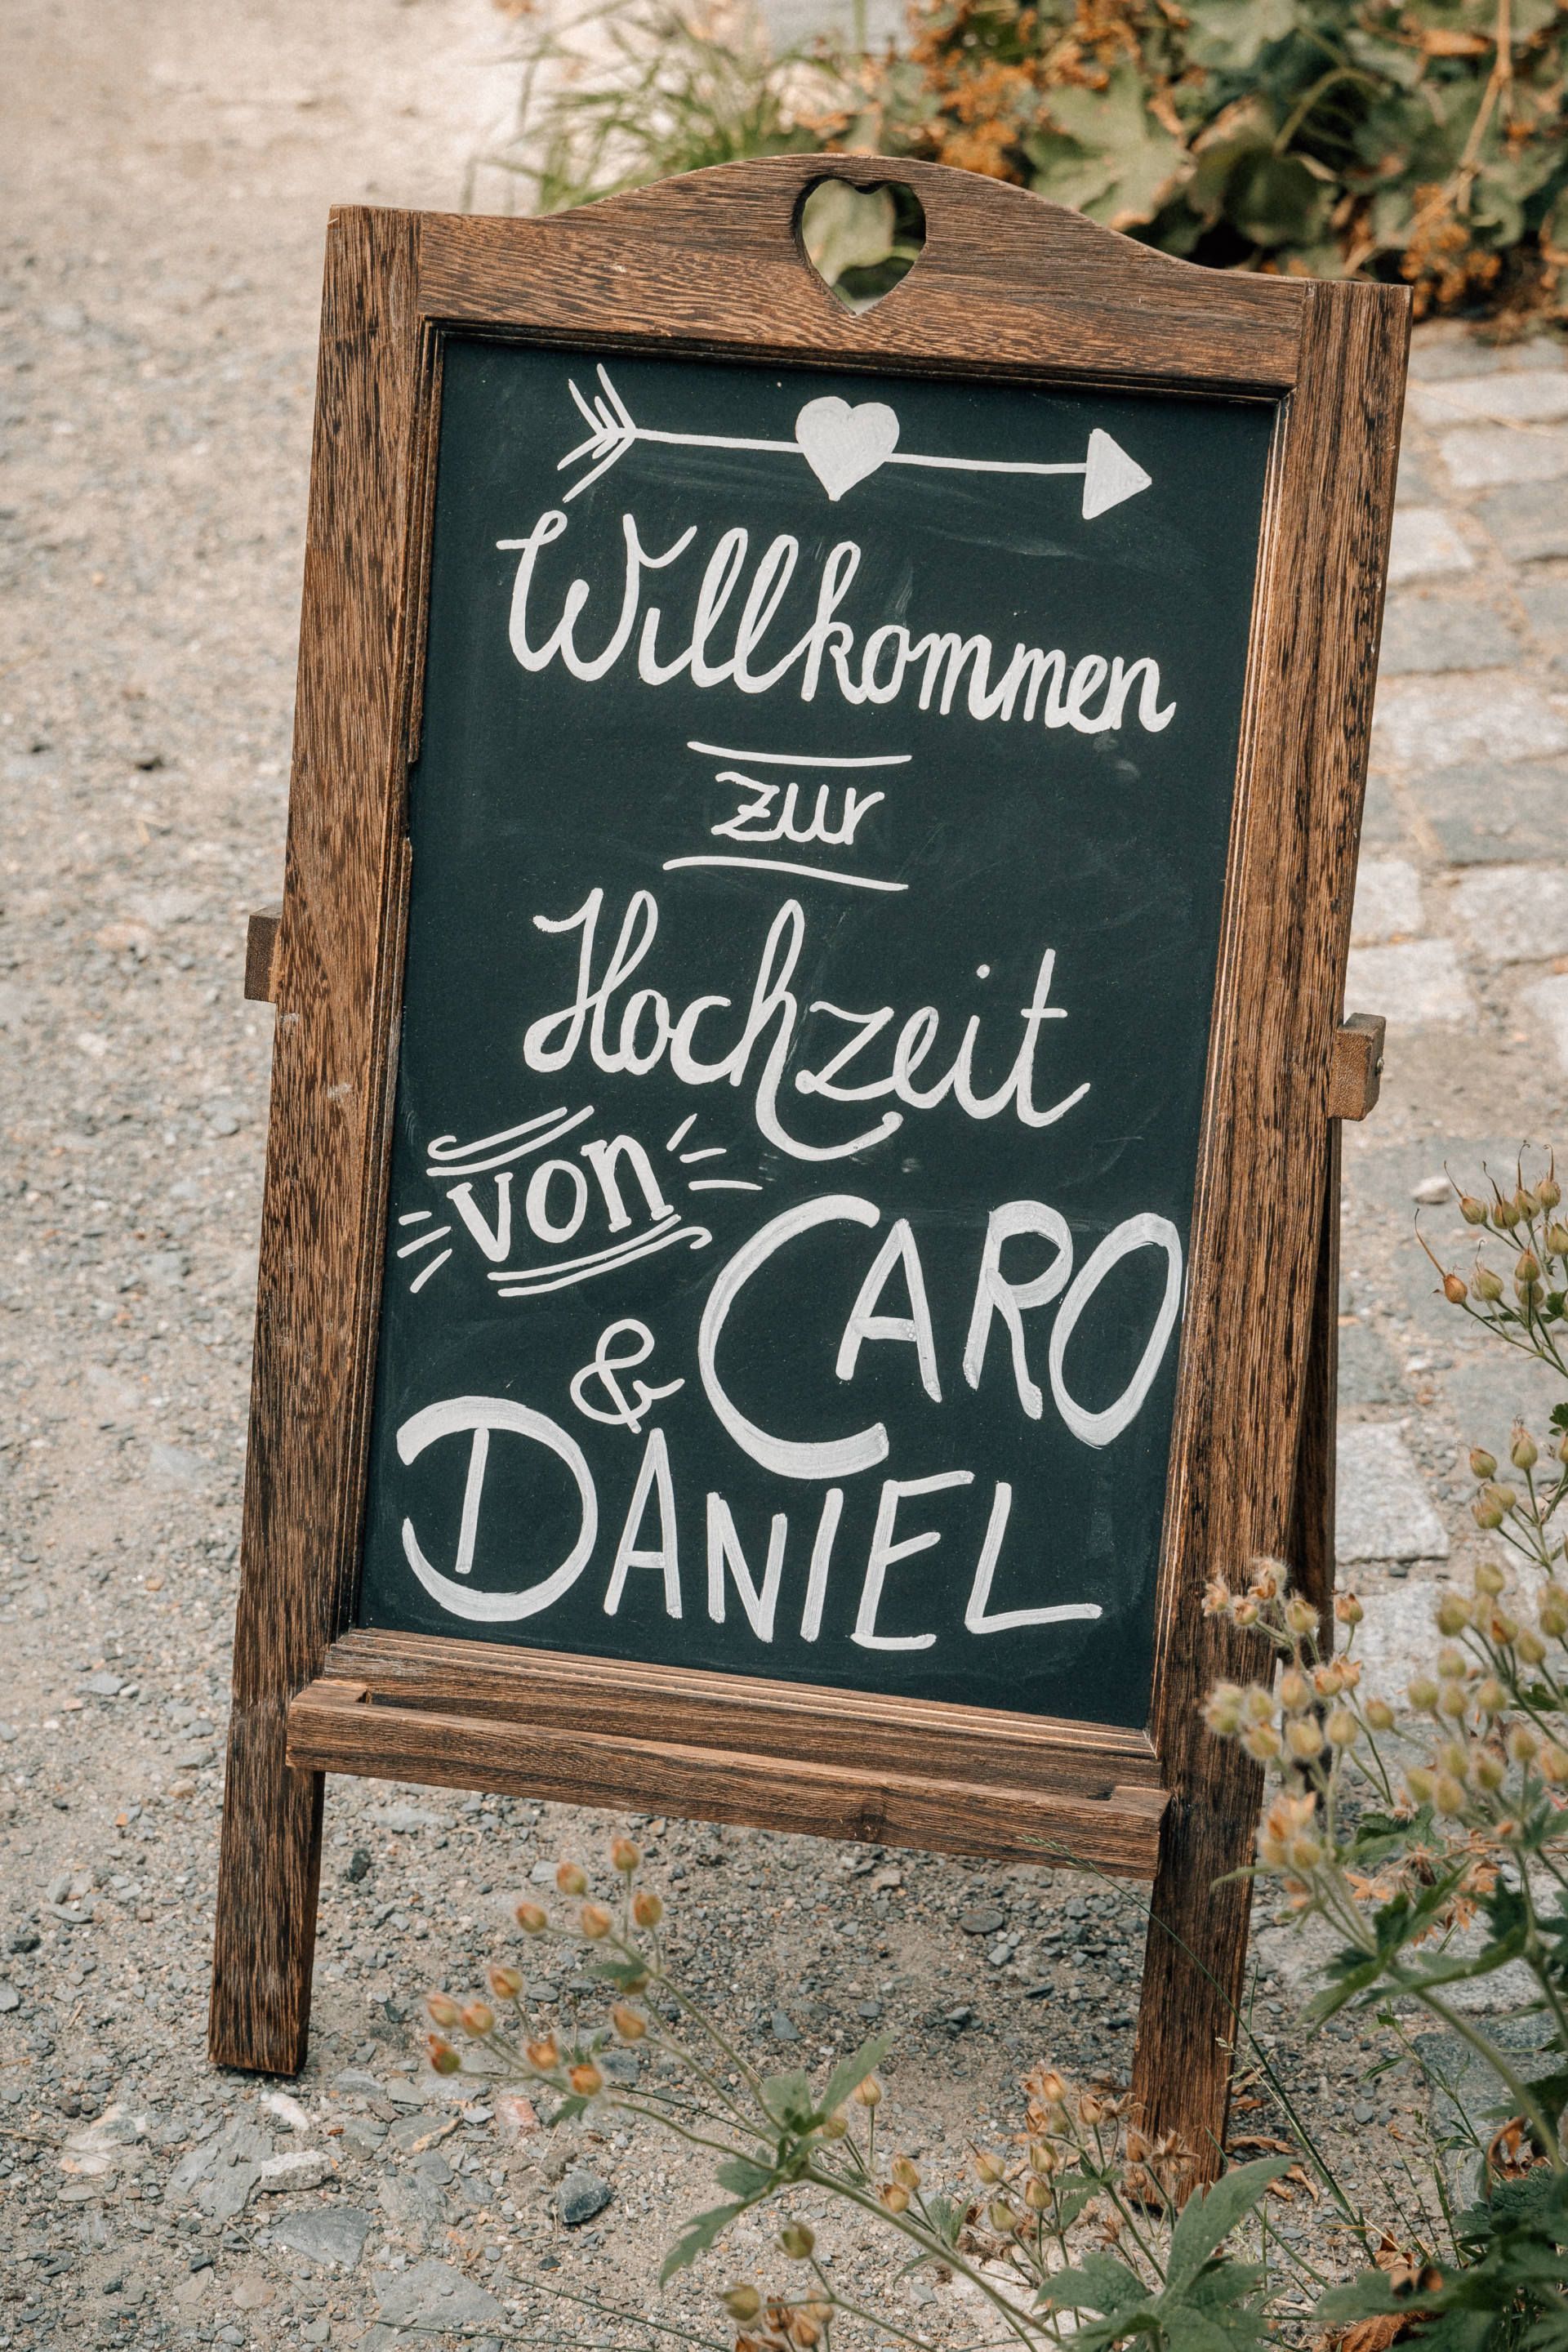 Willkommen
zur
Hochzeit
von CARO
&
DANIEL